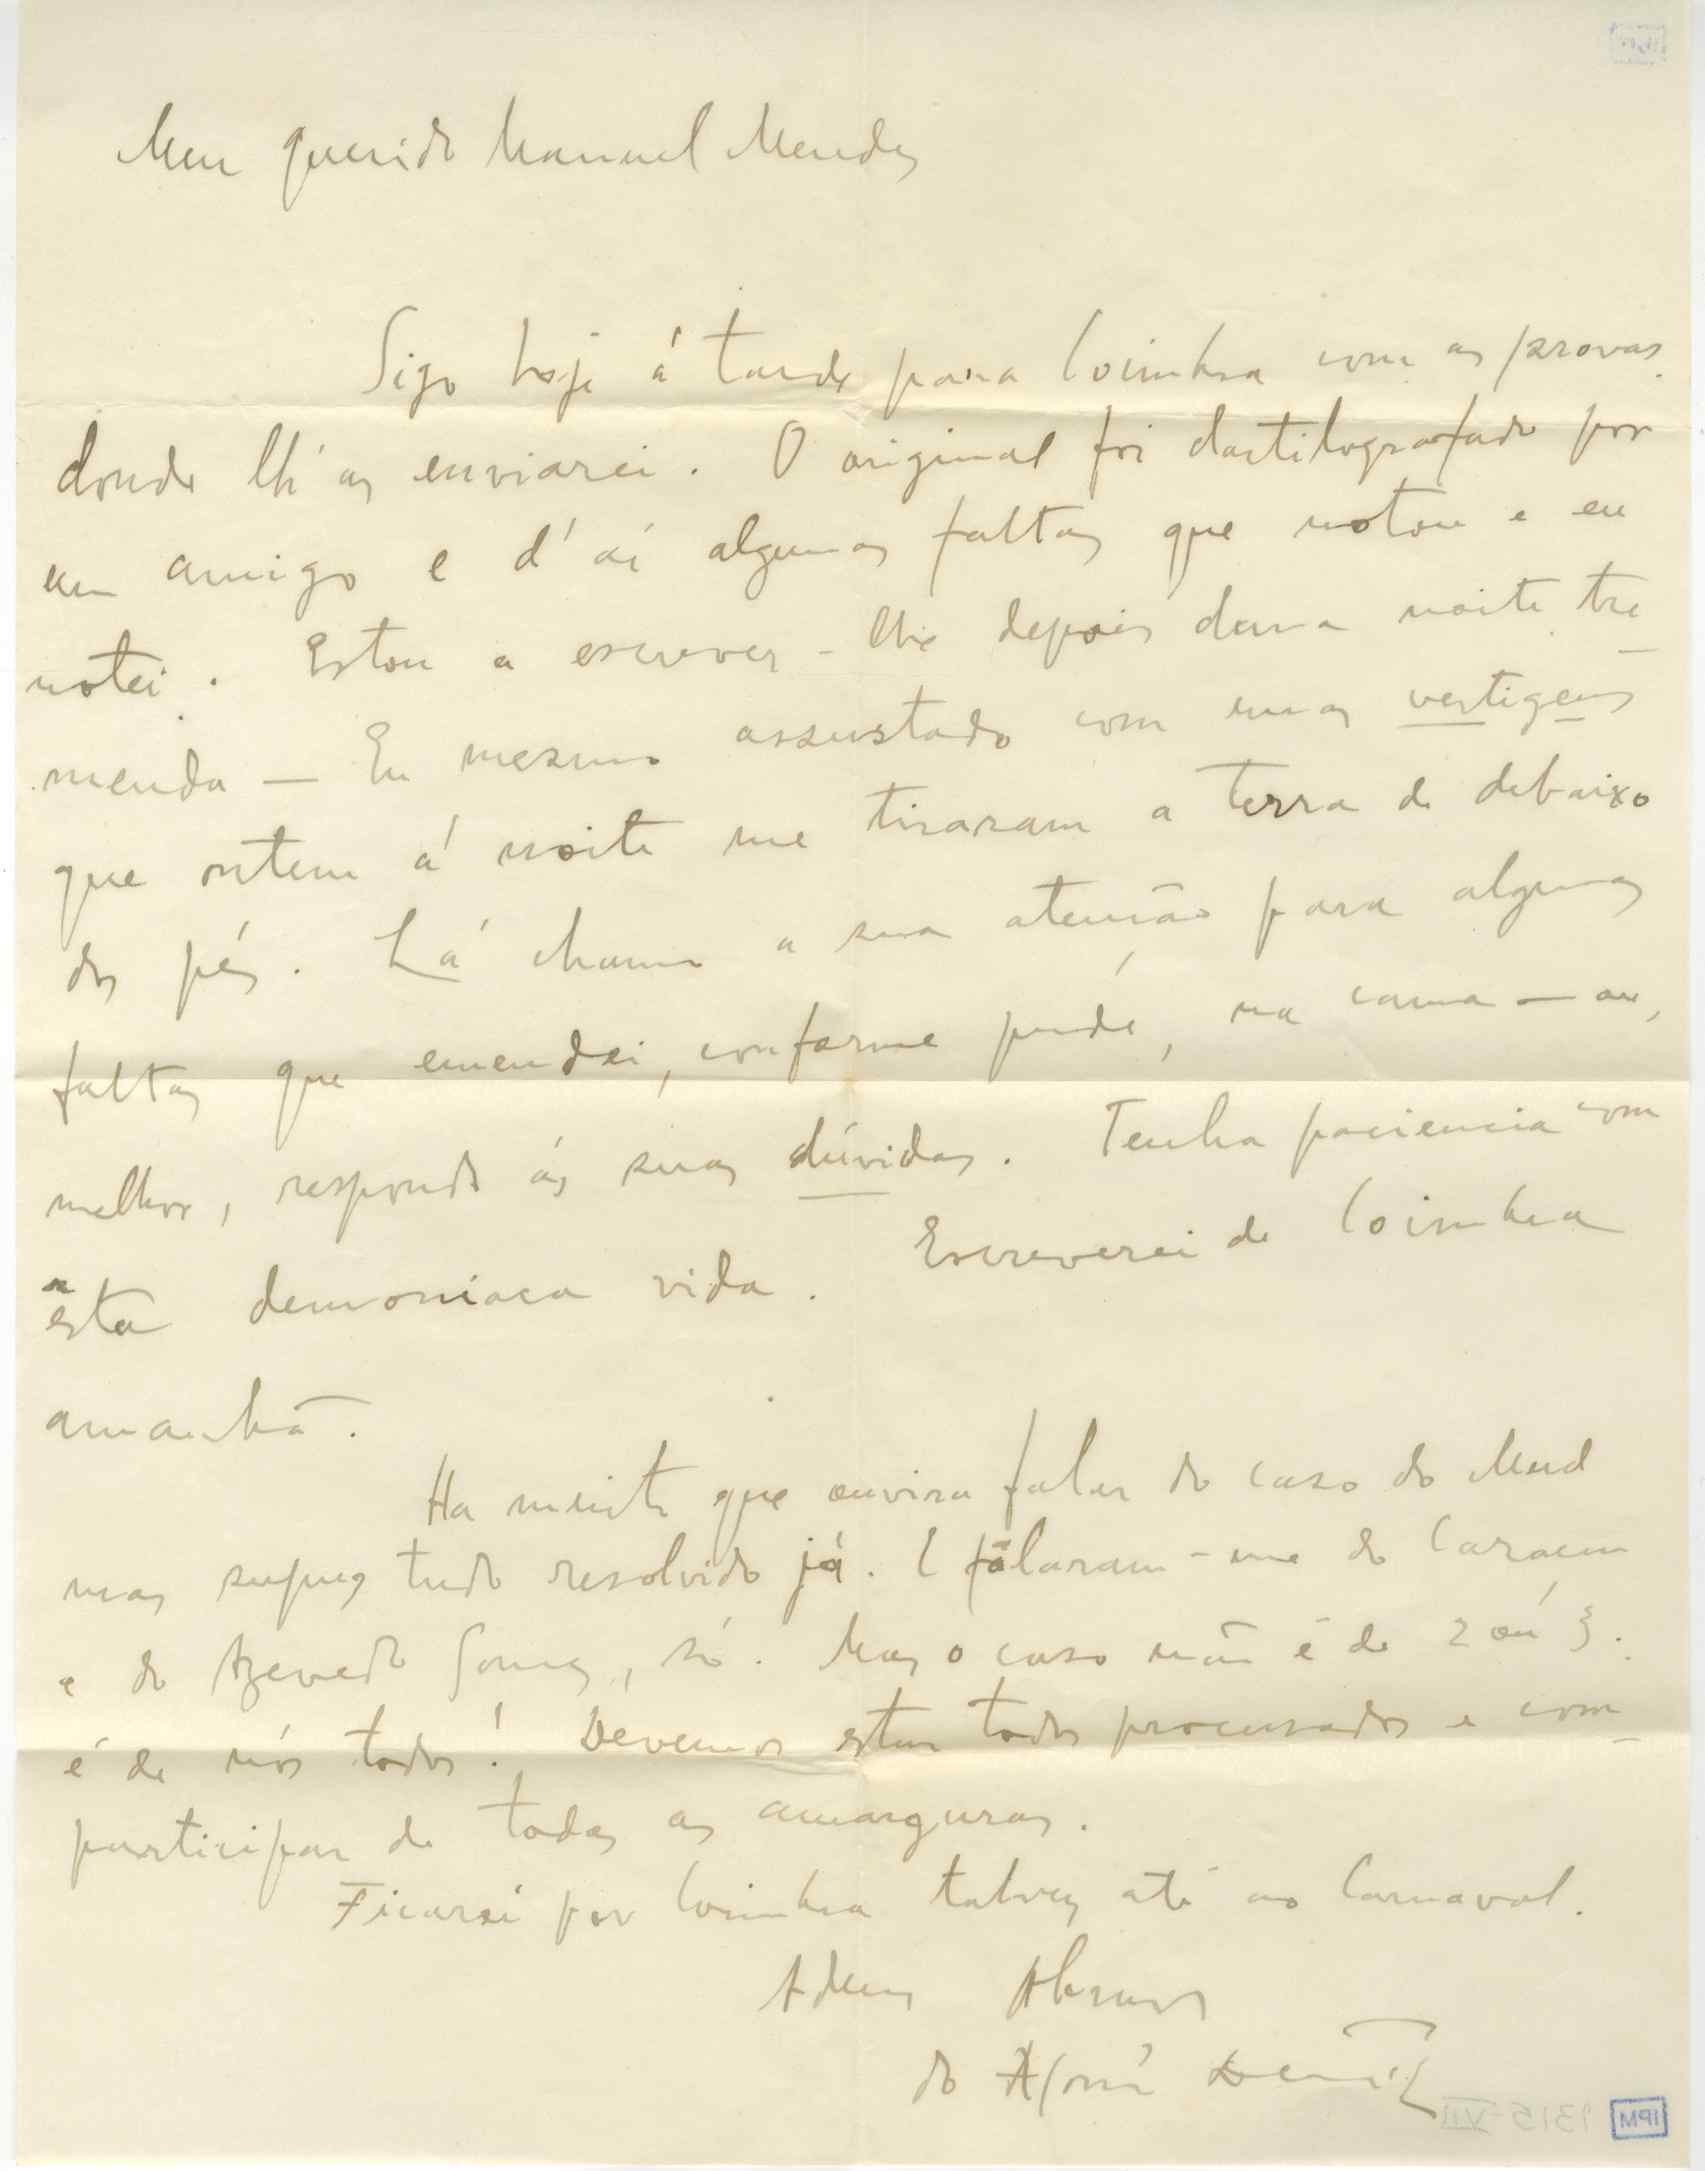 Meu querido Manuel Mendes
Sigo hoje á tarde para Coimbra com as provas
donde lh'as enviarei. O original foi dactilografado por
um amigo e d'aí algumas faltas que notou e eu
notei. Estou a escrever-lhe depois duma noite tre-
menda — Eu mesmo assustado com umas vertigens
que ontem á noite me tiraram a terra de debaixo
dos pés. Lá chamo a sua atenção para algumas
faltas que emendei, conforme pude, na cama — ou,
melhor, respondo ás suas dúvidas. Tenha paciencia com
esta demoníaca vida. Escreverei de Coimbra
amanhã.
Ha muito que ouvira falar do caso do Mud
mas supuz tudo resolvido já. E falaram-me do Caraça
e do Azevedo Gomes, só. Mas o caso não é de 2 ou 3.
é de nós todos! Devemos estar todos procurados e com-
participar de todas as amarguras.
Ficarei por Coimbra talvez até ao Carnaval.
Adeus Abraços
do
IPM
1315-VII